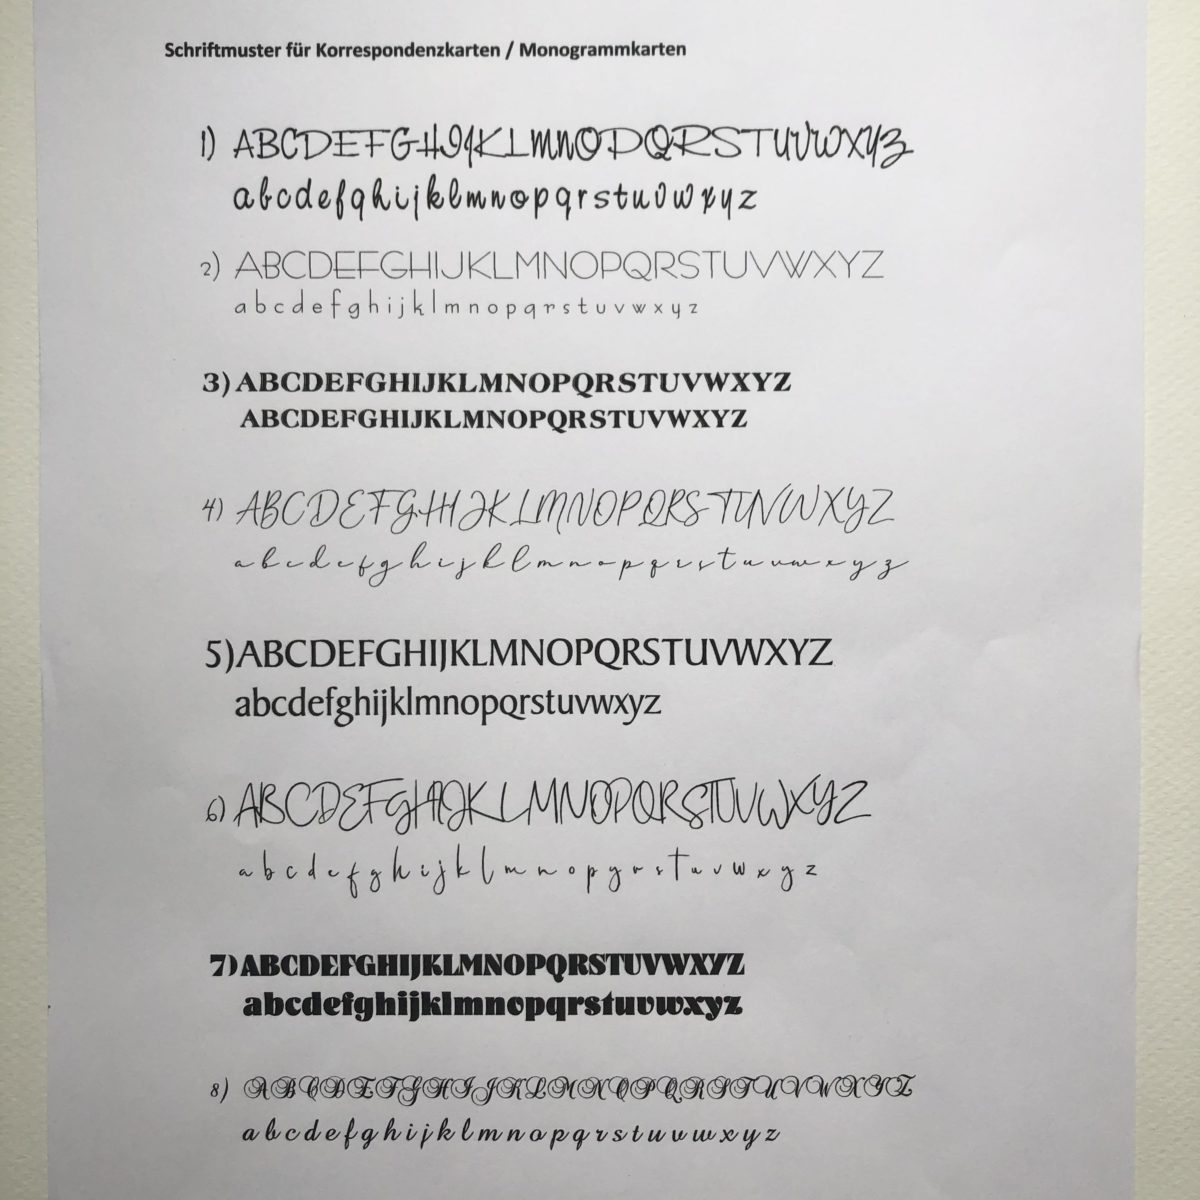 Schriftmuster für Korrespondenzkarten / Monogrammkarten
1) ABCDEFGHIJKLMNOPQRSTUVWXYZ
abcdefghijklmnopqrstuvwxyz
2) ABCDEFGHIJKLMNOPQRSTUVWXYZ
abcdefghijklmnopqrstuvwxyz
3) ABCDEFGHIJKLMNOPQRSTUVWXYZ
ABCDEFGHIJKLMNOPQRSTUVWXYZ
4) ABCDEFGHIJKLMNOPQRSTUVWXYZ
abcdefghijklmnopqrstuvwxyz
5) ABCDEFGHIJKLMNOPQRSTUVWXYZ
abcdefghijklmnopqrstuvwxyz
6) ABCDEFGHIJKLMNOPQRSTUVWXYZ
abcdefghijklmnopqrstuvwxyz
7) ABCDEFGHIJKLMNOPQRSTUVWXYZ
abcdefghijklmnopqrstuvwxyz
8) ABCDEFGHIJKLMNOPQRSTUVWXYZ
abcdefghijklmnopqrstuvwxyz